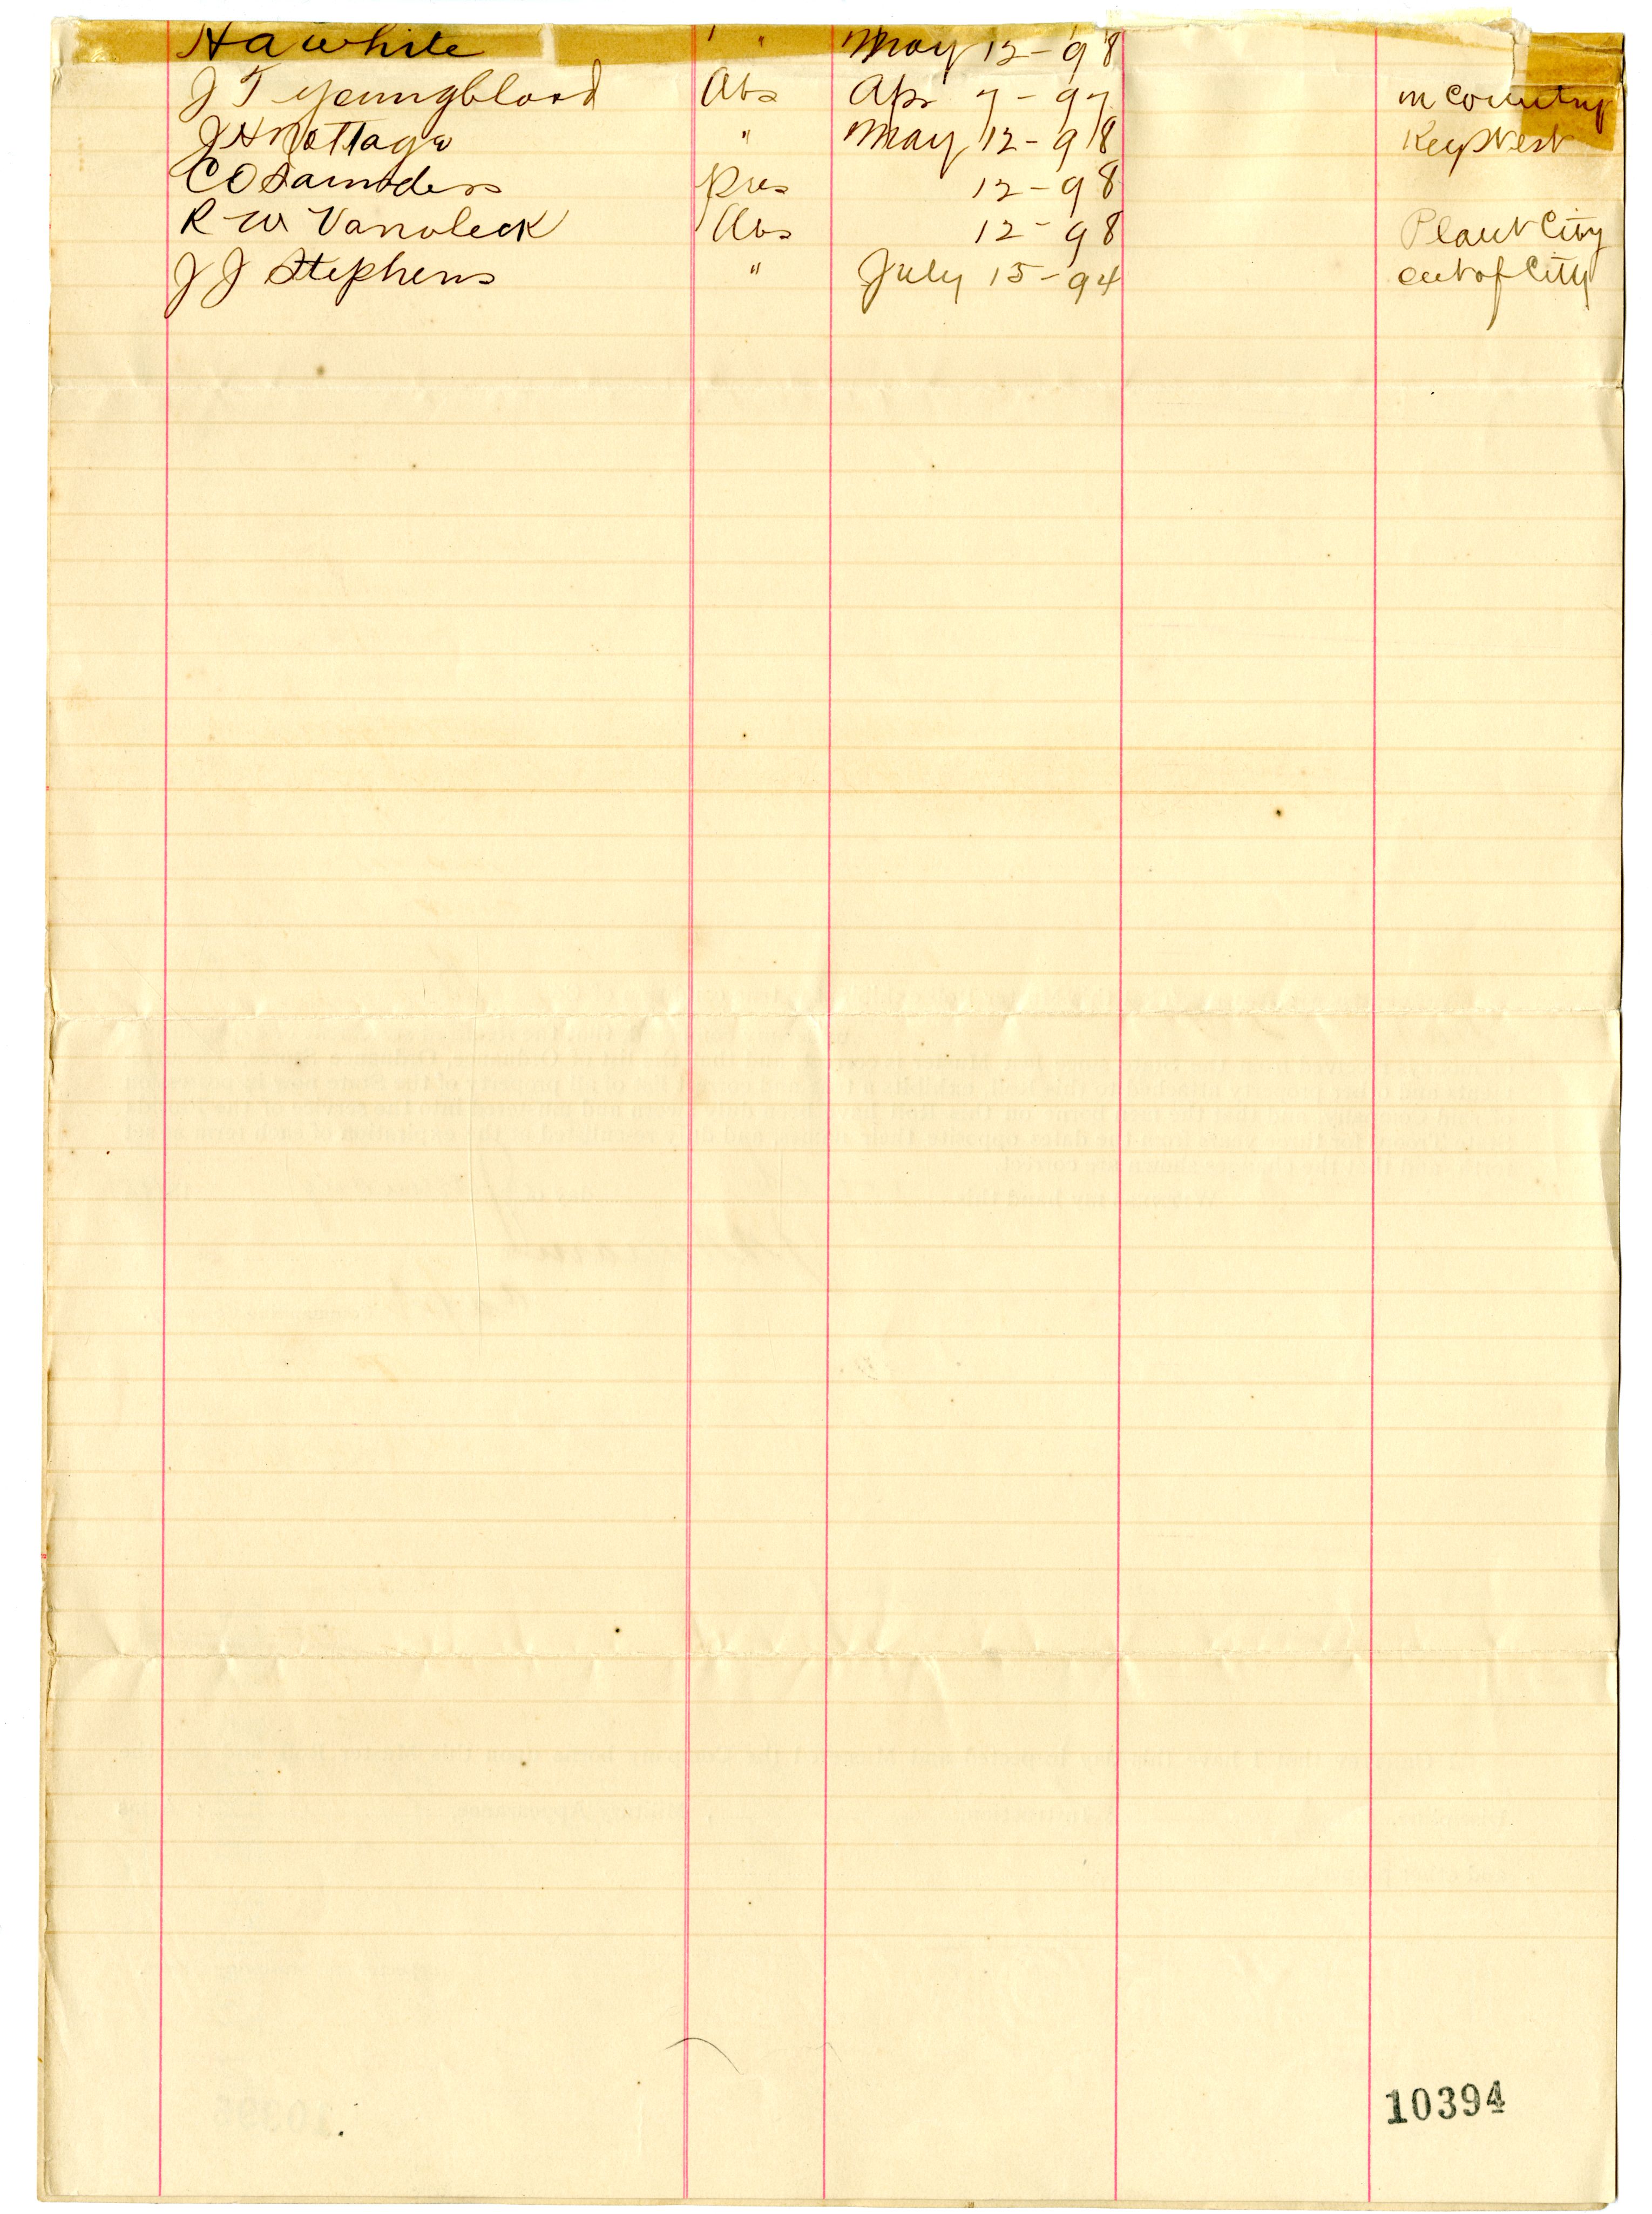 H A White " May 12-98
J T Youngblood Abs Apr 7-97 in Country
J H Nottage " May 12-98 Key West
C O Saunders Pres 12-98
R W Abs 12-98 Plant City
J J Stephens " July 15-94 out of City
10394